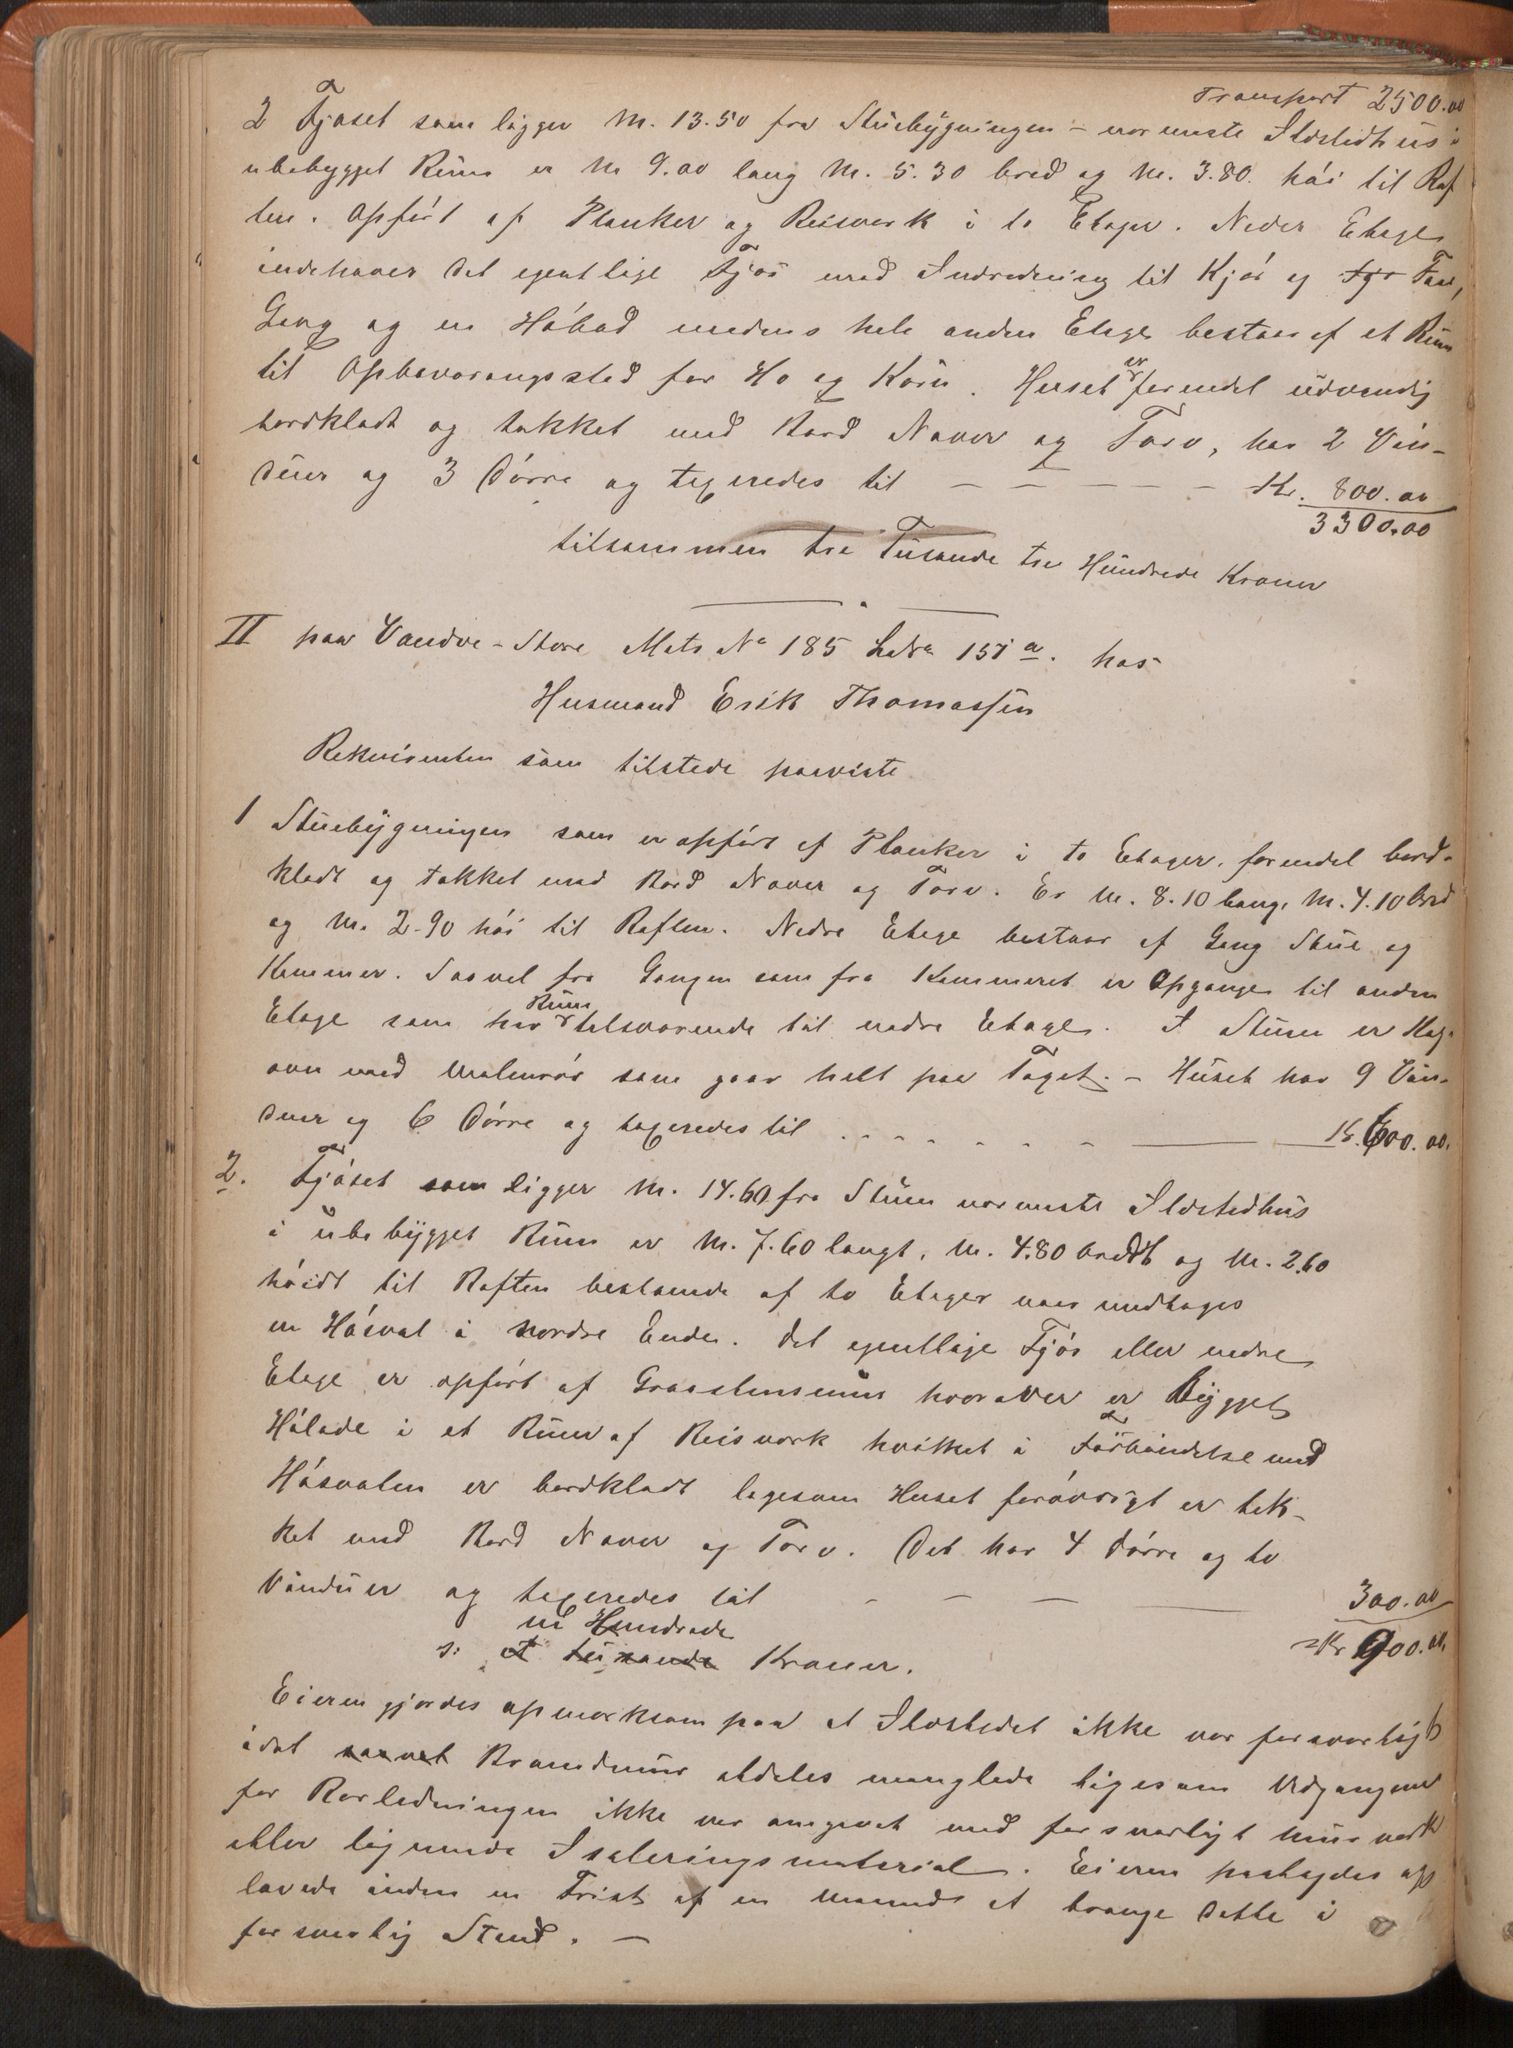 Transport 2500.00
2 Fjøset som ligger M. 13.50 fra Stuebygningen – nærmeste Ildstedhus i
ubebygget Rum er M 9.00 lang M. 5.30 bred og M. 3.80. høi til Raf
ten. Opført af Planker og Reisverk i to Etager. Neder Etage
indehaver det egentlige Fjøs med Indredning til Kjør og Faar,
Gang og en Høbod medens hele anden Etage bestaar af et Rum
til Opbevaringssted for Hø og Korn. Huset er forendel udvendig
bordklædt og tækket med Bord Næver og Torv, har 2 Vin-
duer og 3 Dørre og taxeredes til – – – – – Kr. 800.00
3300.00
tilsammen tre Tusende tre Hundrede Kroner
II paa Vandve-Store Mats No 185 LNo 157 a. hos
Husmand Erik Thomassen
Rekvirenten som tilstede paaviste
1 Stuebygningen som er opført af Planker i to Etager. forendel bord-
klædt og tækket med Bord Næver og Torv. Er M. 8.10 lang, M. 4.10 bred
og M. 2.90 høi til Raften. Nedre Etage bestaar af Gang Stue og
Kammer. Saavel fra Gangen som fra Kammeret er Opgange til anden
Etage som har Rum tilsvarende til nedre Etage. I Stuen er Kog-
ovn med Malmrør som gaar helt paa Taget. – Huset har 9 Vin-
duer og 6 Dørre og taxeredes til . . - - - - - Kr. 600.00.
2. Fjøset som ligger M. 14.60 fra Stuen nærmeste Ildstedhus
i ubebygget Rum er M. 7.60 langt, M. 4.80 bredt og M. 2.60
høidt til Raften bestaaende af to Etager naar undtages
en Høsval i nordre Ende. Det egentlige Fjøs eller nedre
Etage er opført af Graastensmur hvorover er bygget
Hølade i et Rum af Reisværk hvilket i Forbindelse med
Høsvalen er bordklædt ligesom Huset forøvrigt er tæk-
ket med Bord Næver og Torv. Det har 4 Dørre og to
Vinduer og taxeredes til – – – 300.00
ni Hundrede Kr 900.00.
s: et tusende Kroner.
Eieren gjordes opmærksom paa at Ildstedet ikke var forsvarligt
idet saavel Brandmur aldeles manglede ligesom Udgangene
for Rørledningen ikke var omgivet med forsvarligt Murværk
eller lignende Isoleringsmaterial. Eieren paalagdes og
lovede inden en Frist af en Maaned at bringe dette i
forsvarlig Stand. –